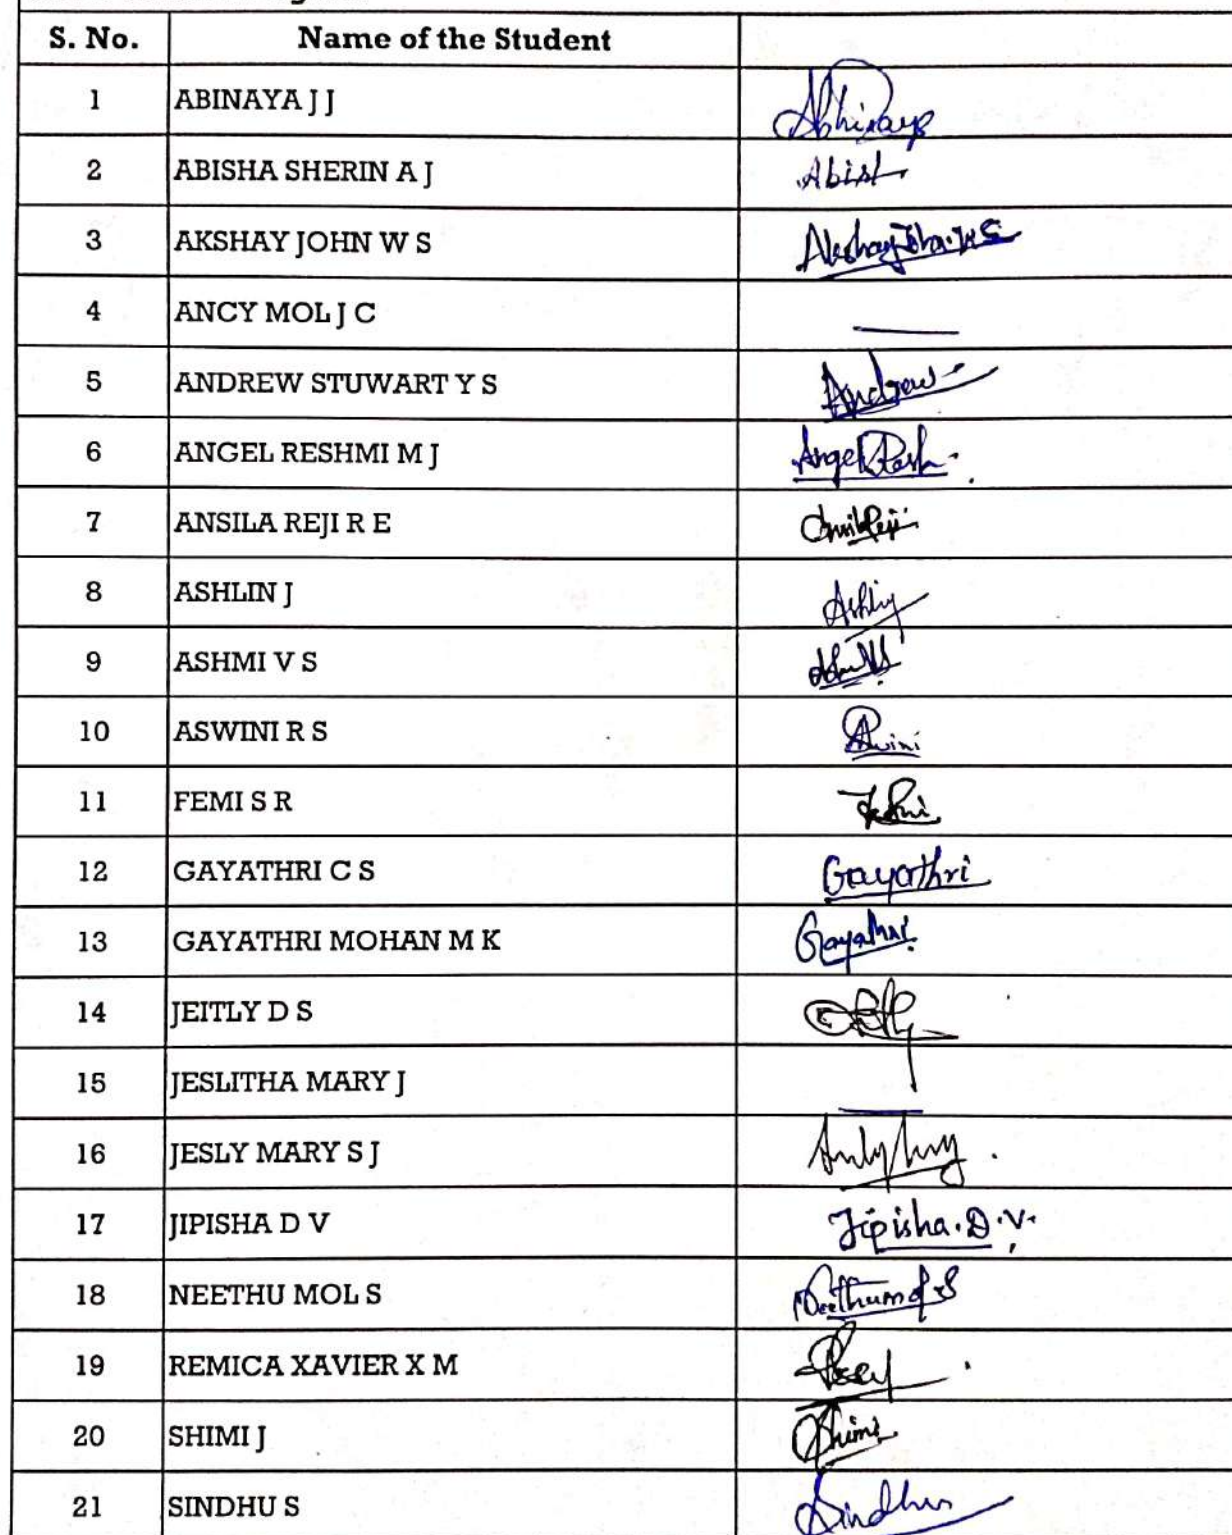 S. No. Name of the Student
1 ABINAYA J J Abhinaya
2 ABISHA SHERIN A J Abish
3 AKSHAY JOHN W S
4 ANCY MOL J C —
5 ANDREW STUWART Y S Andrew
6 ANGEL RESHMI M J Angel Resh
7 ANSILA REJI R E
8 ASHLIN J Ashlin
9 ASHMI V S
10 ASWINI R S
11 FEMI S R
12 GAYATHRI C S Gayathri
13 GAYATHRI MOHAN M K Gayathri
14 JEITLY D S
15 JESLITHA MARY J —
16 JESLY MARY S J
17 JIPISHA D V Jipisha. D. V.
18 NEETHU MOL S Neethumol S
19 REMICA XAVIER X M
20 SHIMI J Shimi
21 SINDHU S Sindhu